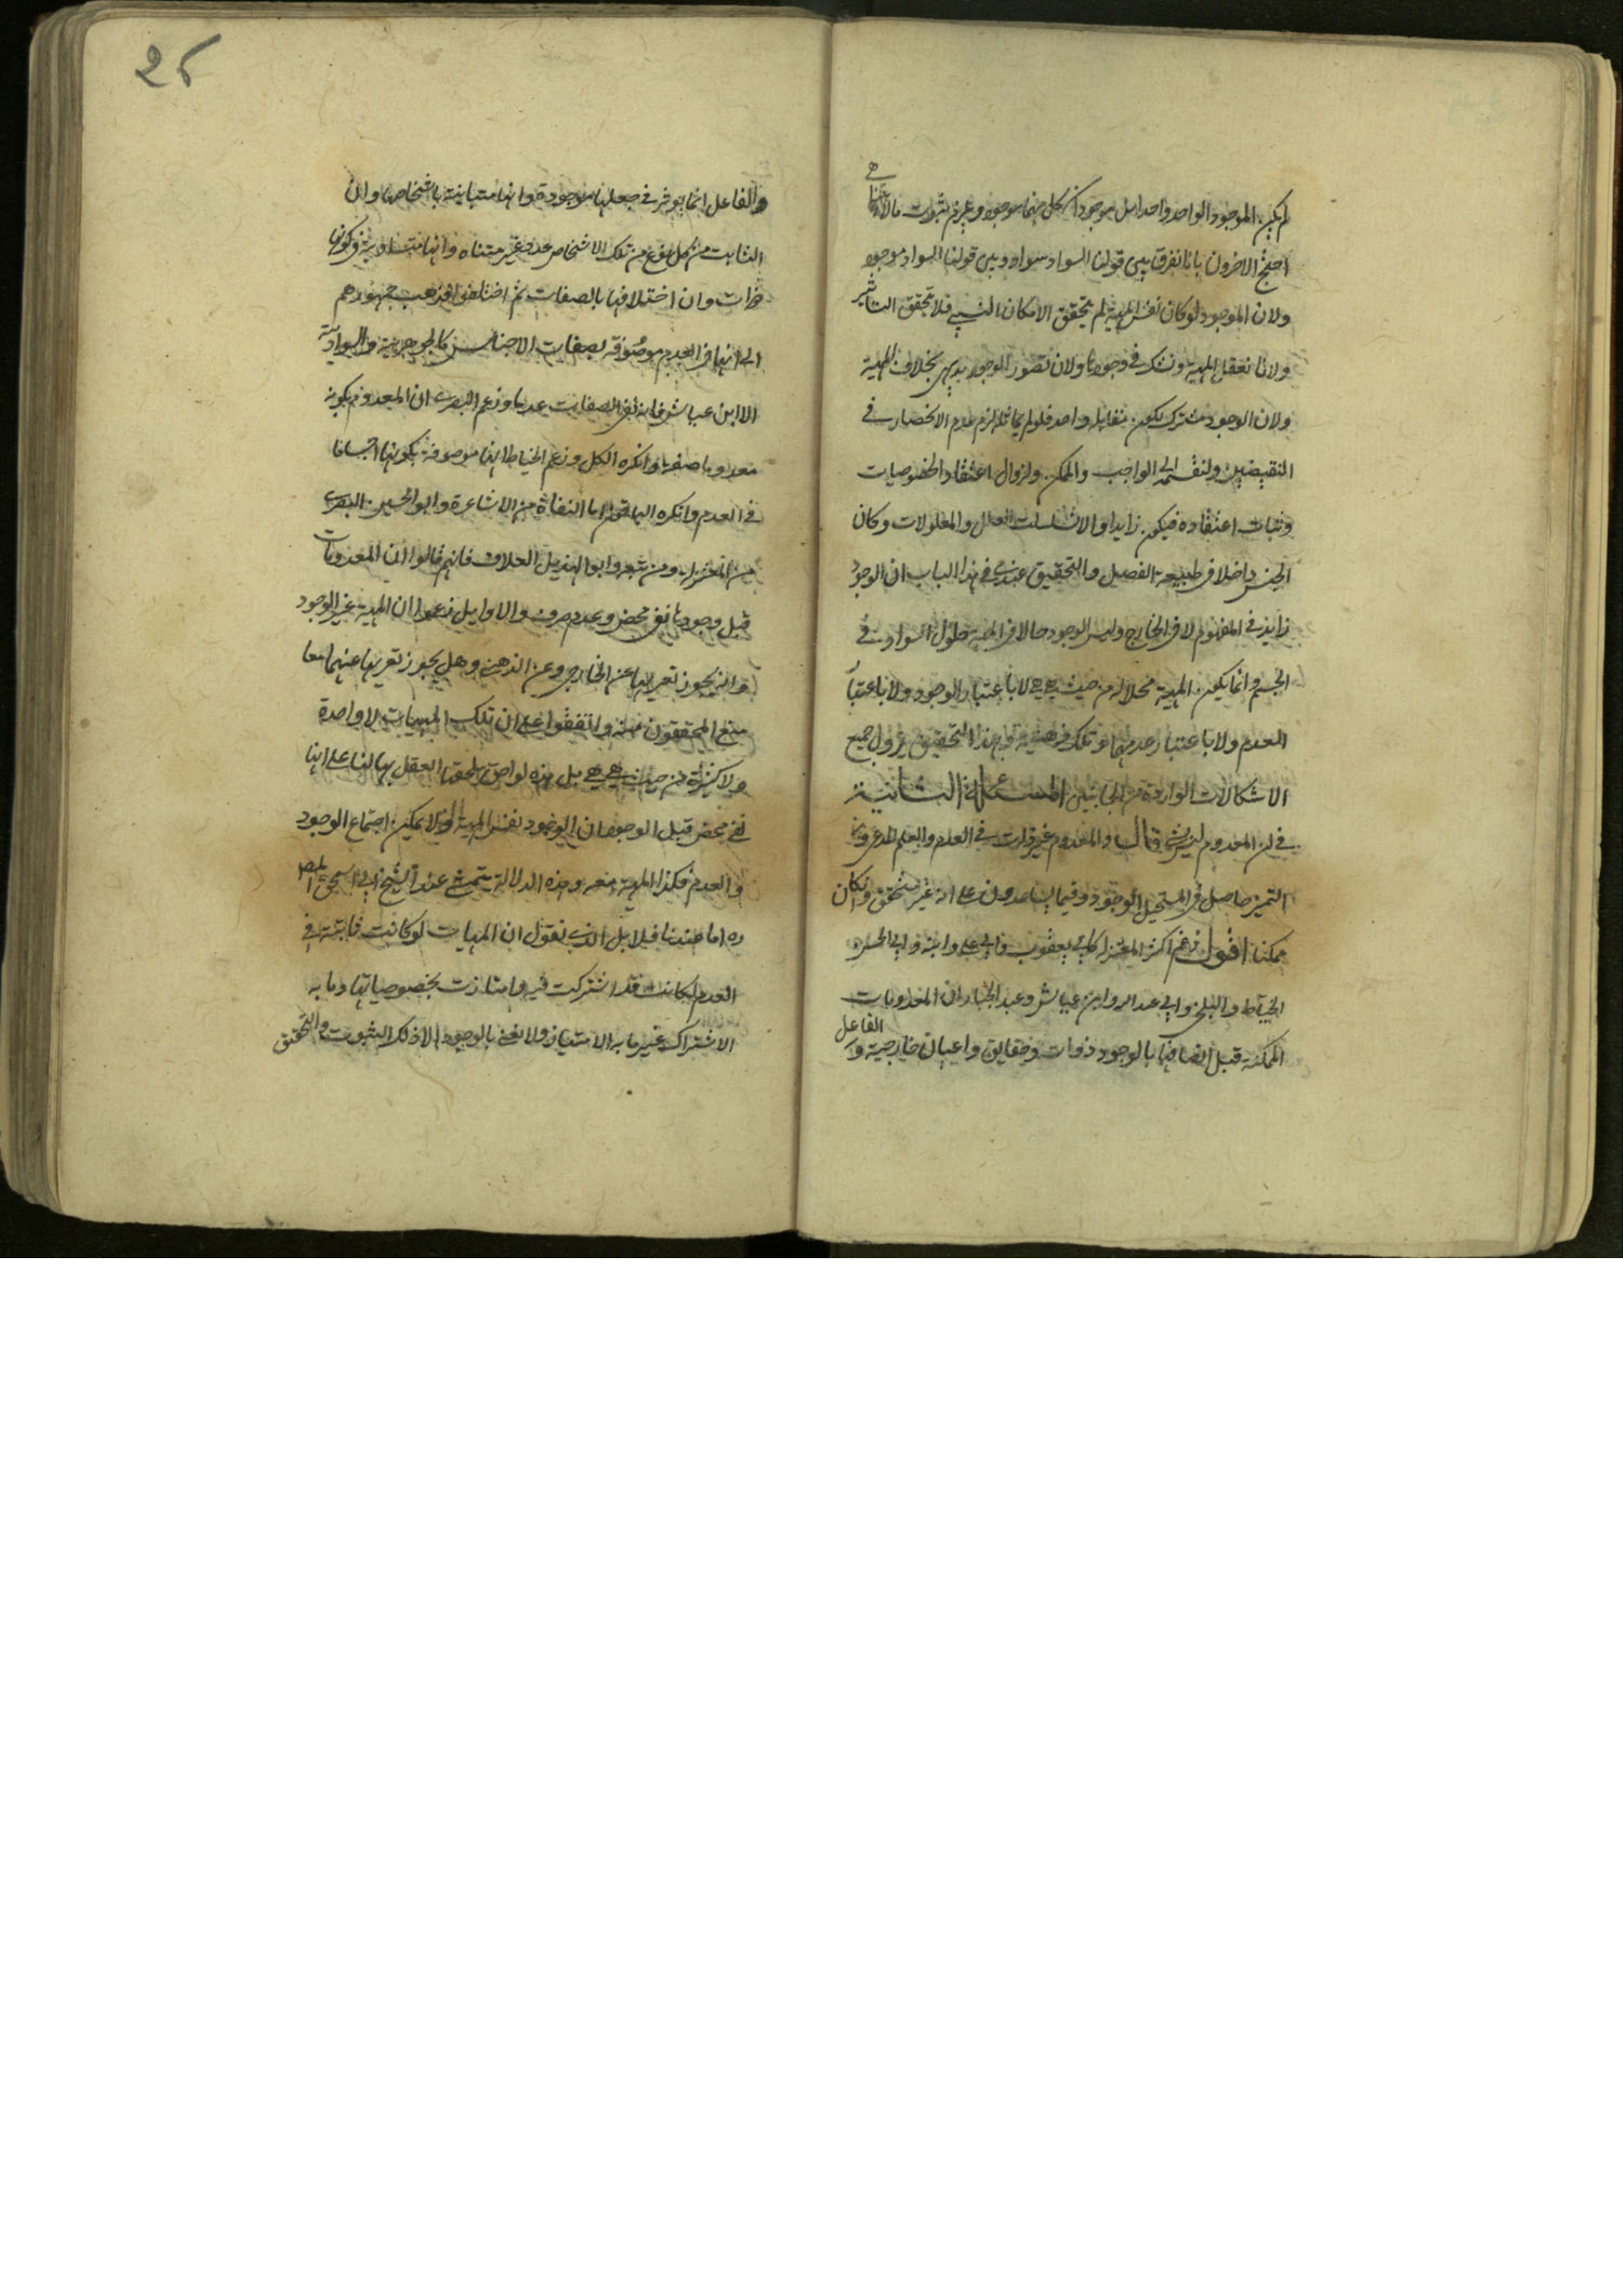 لم يكن الموجود الواحد واحدا بل موجودان كل منهما موجود ويلزم ثبوت ما لا يتناهى
احتج الاخرون بانا نفرق بين قولنا السواد سواد وبين قولنا السواد موجود
ولان الموجود لو كان نفس المهية لم يتحقق الامكان النسبي فلا تحقق التاثير
ولانا نعقل المهية ونشك في وجودها ولان تصور الوجود بديهي بخلاف المهية
ولان الوجود مشترك لكون مقابله واحد فلو لم يماثله لزم عدم الانحصار في
النقيضين ولنقسمه الى الواجب والممكن ولزوال اعتقاد الخصوصيات
وثبات اعتقاده فيكون زايدا والا تسلسلت العلل والمعلولات وكان
الجنس داخلا في طبيعة الفصل والتحقيق عندي في هذا الباب ان الوجود
زايد في المفهوم لا في الخارج وليس الوجود حالا في المهية حلول السواد في
الجسم وانما يكون المهية محلا له من حيث هي هي لا باعتبار الوجود ولا باعتبار
العدم ولا باعتبار عدمهما وتلك ذهنية وبهذا التحقيق يزول جميع
الاشكالات الواردة من الجانبين المسئلة الثانية
في ان المعدوم ليس بشئ قال والمعدوم غير ذات في العدم والعلم
التميز حاصل في المستحيل الوجود وفيما يساعدون على انه غير متحقق وان كان
ممكنا اقول زعم اكثر المعتزلة كابي يعقوب وابي علي وابنه وابي الحسين
الخياط والبلخي وابي عبد الله وابن عياش وعبد الجبار ان المعدومات
الممكنة قبل اتصافها بالوجود ذوات وحقايق واعيان خارجية و الفاعل
26
والفاعل انما يوثر في جعلها موجودة وانها متباينة باشخاصها وان
الثابت من كل نوع من تلك الاشخاص عدد غير متناه وانها متساوية في كونها
ذوات وان اختلافها بالصفات ثم اختلفوا فذهب جمهورهم
الى انها في العدم موصوفة بصفات الاجناس كالجوهرية والسوادية
الا ابن عياش فانه نفى الصفات عدما وزعم البصري ان المعدوم بكونه
معدوما صفة وانكره الكل وزعم الخياط انها موصوفة بكونها اجساما
في العدم وانكره الباقون اما النفاة من الاشاعرة وابو الحسين البصري
من المعتزلة ومن تبعه وابو الهذيل العلاف فانهم قالوا ان المعدومات
قبل وجودها نفي محض وعدم صرف والاوايل زعموا ان المهية غير الوجود
وانه يجوز تعريها عن الخارجي وعن الذهني وهل يجوز تعريها عنهما معا
منع المحققون منه واتفقوا على ان تلك المهيات لا واحدة
ولا كثيرة من حيث هي هي بل هذه لواحق يلحقها العقل بها لنا على انها
نفي محض قبل الوجود ان الوجود نفس المهية ولا يمكن اجتماع الوجود
والعدم فكذا المهية معه وهذه الدلالة يتمشى عند الشيخ ابي اسحق المص
ره اما عندنا فلا بل الذي نقول ان المهيات لو كانت ثابتة في
العدم لكانت قد اشتركت فيه وامتازت بخصوصياتها وما به
الاشتراك غير ما به الامتياز ولا نعني بالوجود الا ذلك الثبوت والتحقق